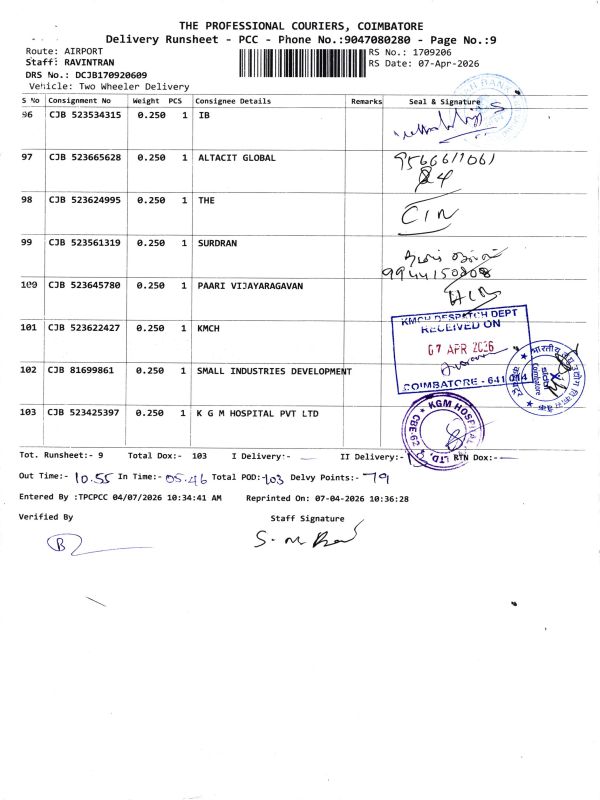 THE PROFESSIONAL COURIERS, COIMBATORE
Delivery Runsheet - PCC - Phone No.:9047080280 - Page No.:9
Route: AIRPORT RS No.: 1709206
Staff: RAVINTRAN RS Date: 07-Apr-2026
DRS No.: DCJB170920609
Vehicle: Two Wheeler Delivery
S No Consignment No Weight PCS Consignee Details Remarks Seal & Signature
96 CJB 523534315 0.250 1 IB
97 CJB 523665628 0.250 1 ALTACIT GLOBAL
9566611061
98 CJB 523624995 0.250 1 THE
99 CJB 523561319 0.250 1 SURDRAN
9944150808
100 CJB 523645780 0.250 1 PAARI VIJAYARAGAVAN
101 CJB 523622427 0.250 1 KMCH
KMCH DESPATCH DEPT
RECEIVED ON
07 APR 2026
COIMBATORE - 641 014
102 CJB 81699861 0.250 1 SMALL INDUSTRIES DEVELOPMENT
103 CJB 523425397 0.250 1 K G M HOSPITAL PVT LTD
KGM HOSPITAL
Tot. Runsheet:- 9 Total Dox:- 103 I Delivery:- II Delivery:- RTN Dox:-
Out Time:- 10.55 In Time:- 05.46 Total POD:-103 Delvy Points:- 79
Entered By :TPCPCC 04/07/2026 10:34:41 AM Reprinted On: 07-04-2026 10:36:28
Verified By Staff Signature